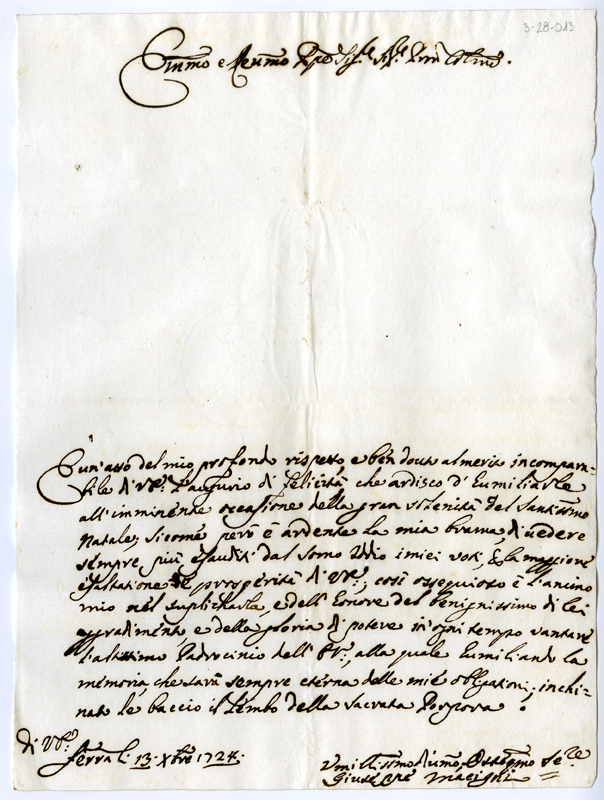 3-28-013
Emmo e Revmo Ppe Sigr. Sigr. Pron Colmo.
È un'atto del mio profondo rispetto, e ben douto al merito incompara=
bile di VE. l'augurio di felicità che ardisco d'Eumiliarle
all'imminente occasione della gran solenità del Santissimo
Natale, sicome però è ardente la mia brama, di uedere
sempre più esauditi dal somo Iddio i miei voti, e la maggiore
esaltatione e prosperità di VE., così ossequioso è l'animo
mio nel suplicharla, e dell'Eonore del benignissimo di lei
agradimento, e della gloria di potere in ogni tempo vantare
l'altissimo Padrocinio dell'EV., alla quale Eumiliando la
memoria, che sarà sempre eterna delle mie obligationi, inchi=
nato le baccio il Lembo della Sacrata Porpora.
di VE.
Ferra li 13 Xbre 1724.
Umilissimo Divmo, Ossegmo Sere
Giuseppe Macigni